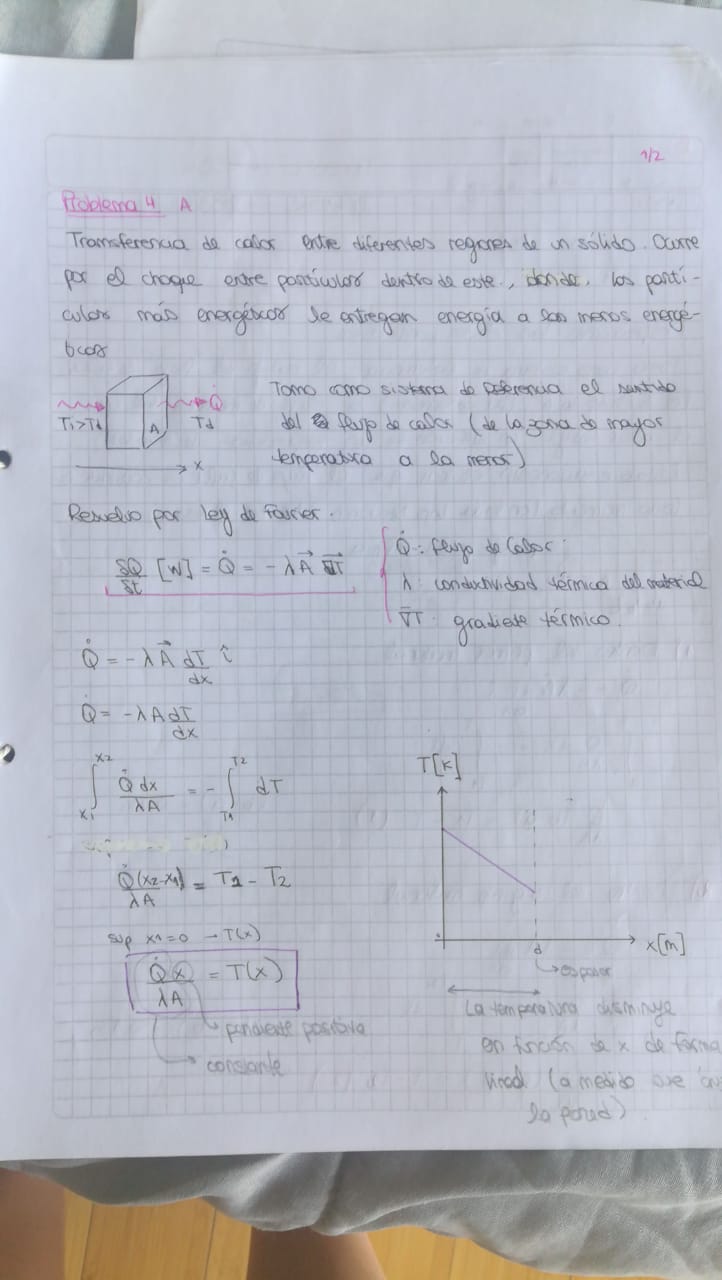 1/2
Problema 4 A
Transferencia de calor entre diferentes regiones de un sólido. Ocurre
por el choque entre partículas dentro de este, donde, las partí-
culas más energéticas le entregan energía a las menos energé-
ticas
T1>Td
A
Q̇
Td
x
Tomo como sistema de referencia el sentido
del flujo de calor (de la zona de mayor
temperatura a la menor)
Resuelvo por Ley de Fourier.
δQ/δt [W] = Q̇ = -λA⃗ ∇⃗T
Q̇: flujo de calor.
λ: conductividad térmica del material
∇̄T: gradiete térmico.
Q̇ = -λA⃗ dT/dx î
Q̇ = -λA dT/dx
∫x1^x2 Q̇dx/λA = -∫T1^T2 dT
Q̇(x2-x1)/λA = T1 - T2
sup x1=0 → T(x)
Q̇x/λA = T(x)
pendiente positiva
constante
T[K]
x[m]
d
espesor
La temperatura disminuye
en función de x de forma
lineal (a medida que
la pared).